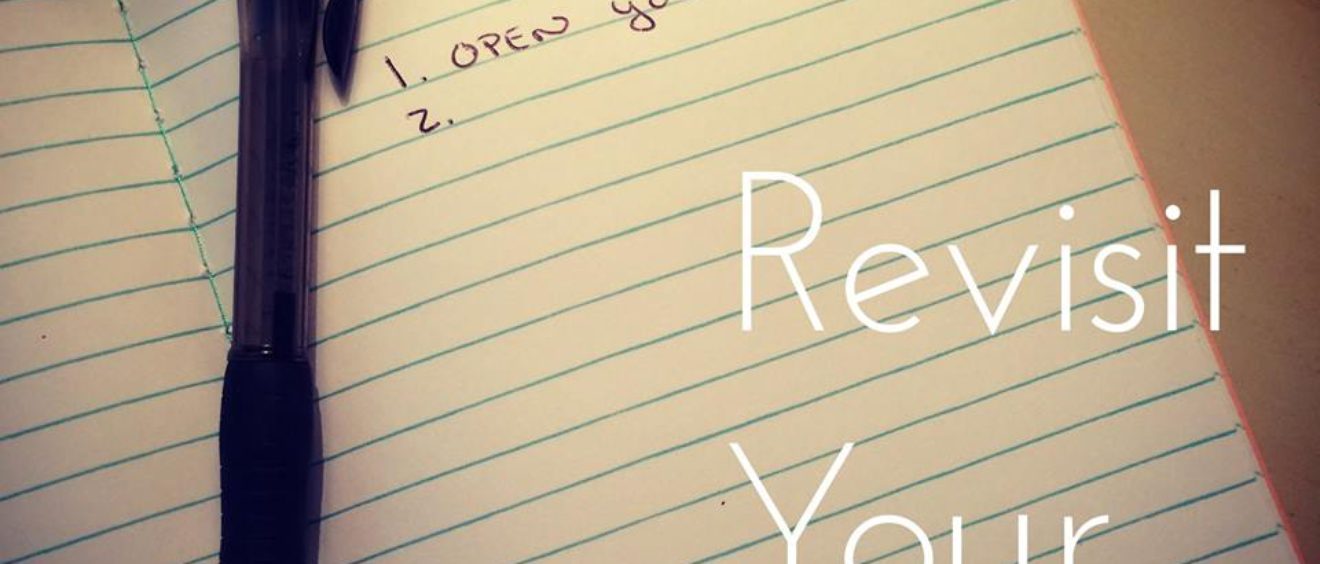 1. OPEN
2.
Revisit
Your